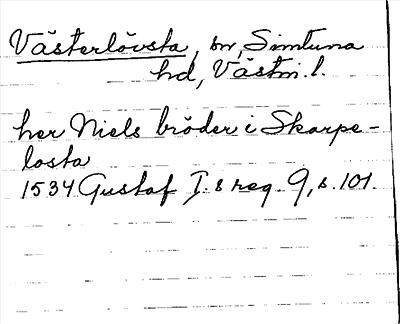 Västerlövsta, sn, Simtuna
hd, Västm. l.
her Niels bröder i Skarpe-
losta
1534 Gustaf I.s reg. 9, s. 101.